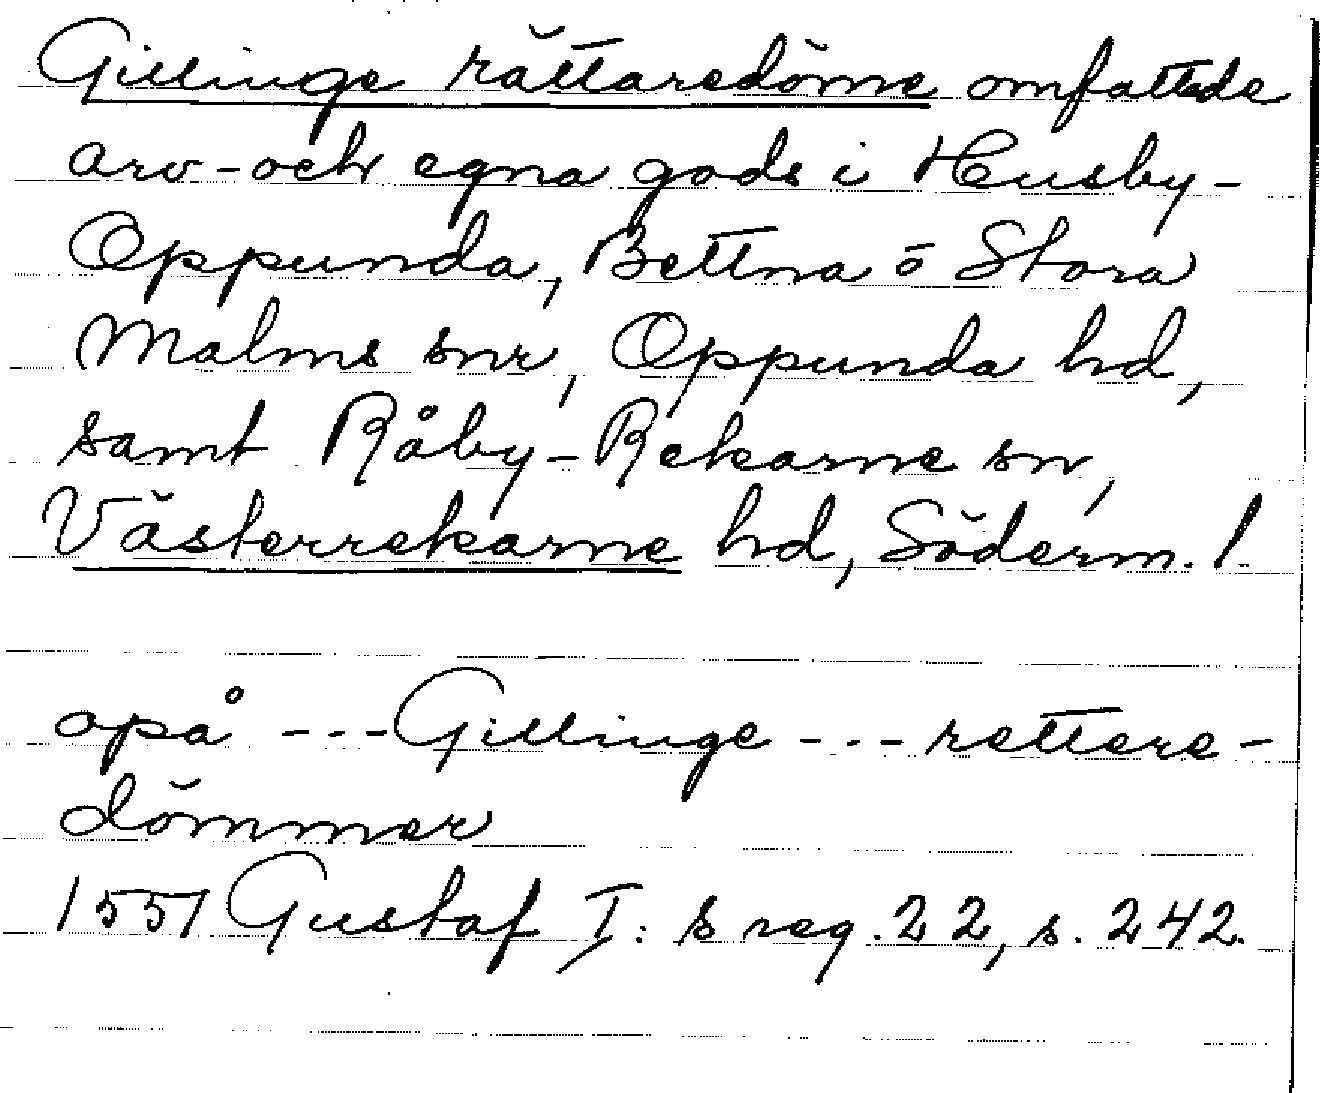 Gillinge rättaredöme omfattade
arv- och egna gods i Husby-
Oppunda, Bettna o Stora
Malms snr, Oppunda hd,
samt Råby-Rekarne sn,
Västerrekarne hd, Söderm. l.
opå --- Gillinge --- rettere-
dömmer
1551 Gustaf I:s reg. 22, s. 242.